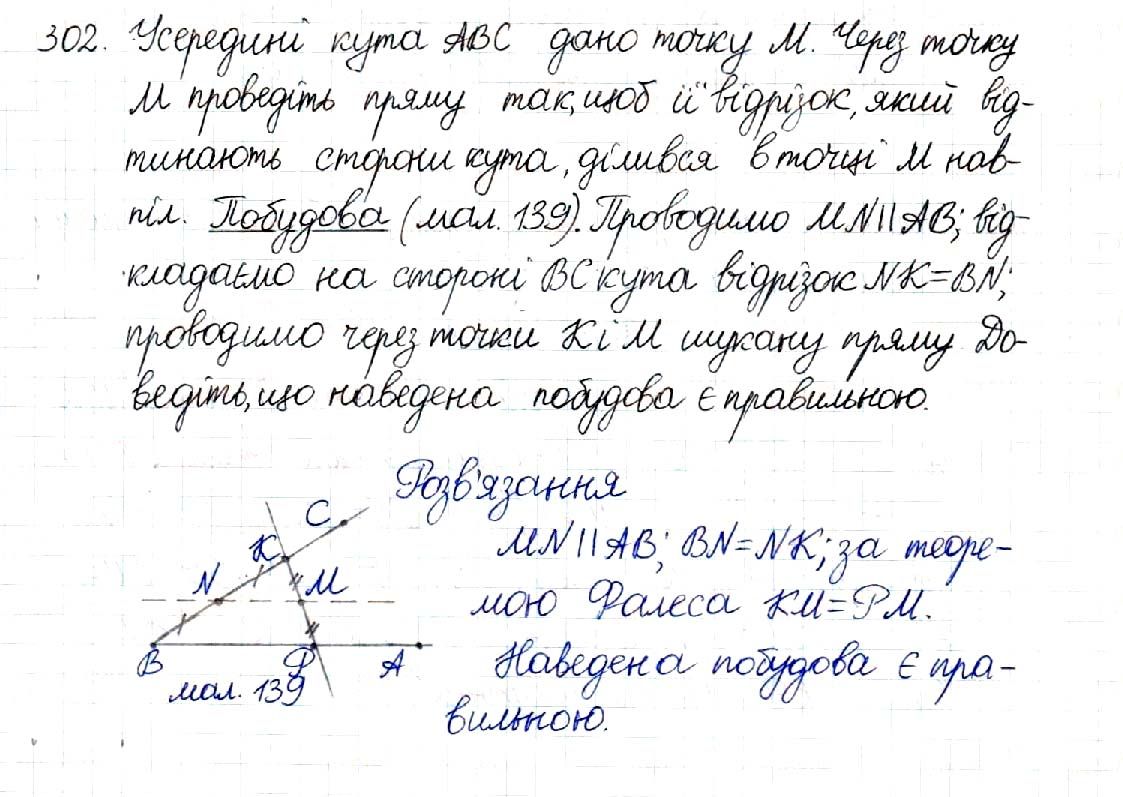 302. Усередині кута ABC дано точку M. Через точку
M проведіть пряму так, щоб її відрізок, який від-
тинають сторони кута, ділився в точці M нав-
піл. Побудова (мал. 139). Проводимо MN||AB; від-
кладаємо на стороні BC кута відрізок NK=BN;
проводимо через точки K і M шукану пряму До-
ведіть, що наведена побудова є правильною.
Розв'язання
C
K
N M
B P A
мал. 139
MN||AB; BN=NK; за теоре-
мою Фалеса KM=PM.
Наведена побудова є пра-
вильною.